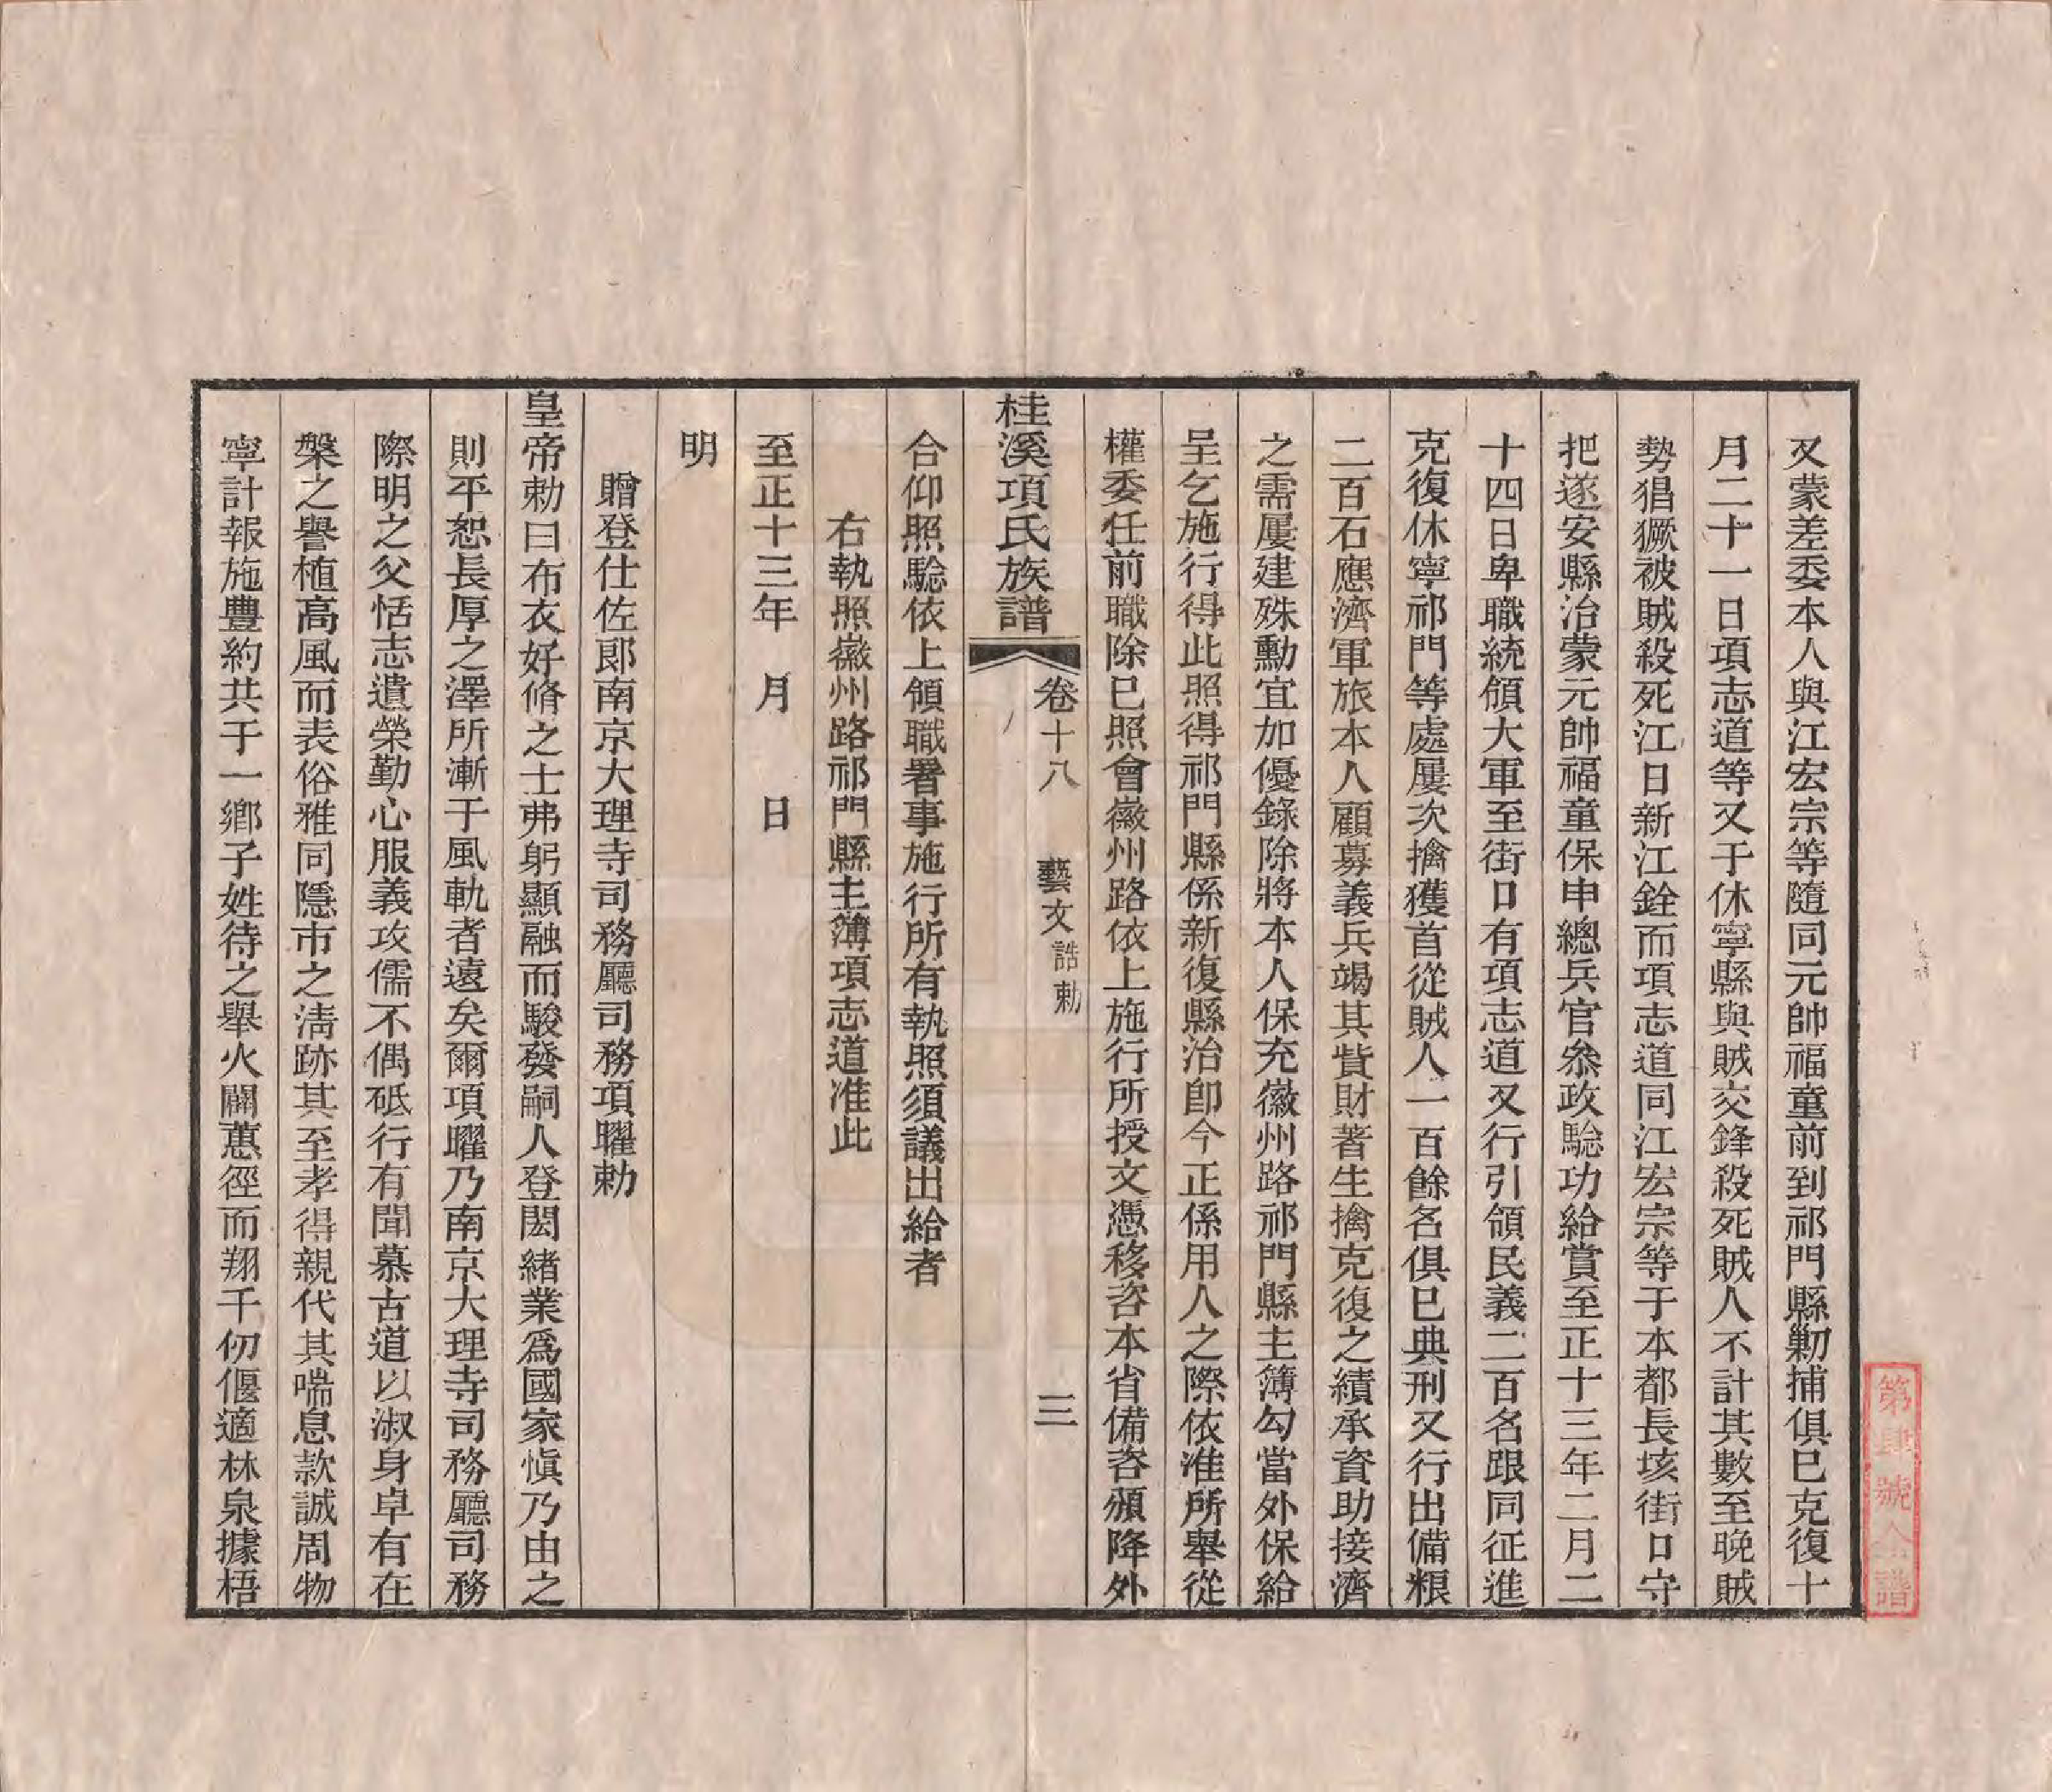 又蒙差委本人與江宏宗等隨同元帥福童前到祁門縣勦捕俱已克復十
月二十一日項志道等又于休寧縣與賊交鋒殺死賊人不計其數至晚賊
勢猖獗被賊殺死江日新江銓而項志道同江宏宗等于本都長垓街口守
把遂安縣治蒙元帥福童保申總兵官叅政騐功給賞至正十三年二月二
十四日卑職統領大軍至街口有項志道又行引領民義二百名跟同征進
克復休寧祁門等處屢次擒獲首從賊人一百餘名俱已典刑又行出備粮
二百石應濟軍旅本人顧募義兵竭其貲財著生擒克復之績承資助接濟
之需屢建殊勳宜加優錄除將本人保充徽州路祁門縣主簿勾當外保給
呈乞施行得此照得祁門縣係新復縣治卽今正係用人之際依准所舉從
權委任前職除已照會徽州路依上施行所授文憑移咨本省備咨頒降外
桂溪項氏族譜 卷十八 藝文 誥勅 三
合仰照騐依上領職署事施行所有執照須議出給者
右執照徽州路祁門縣主簿項志道准此
至正十三年 月 日
明
贈登仕佐郎南京大理寺司務廳司務項曜勅
皇帝勅曰布衣好脩之士弗躬顯融而駿發嗣人登閎緒業爲國家愼乃由之
則平恕長厚之澤所漸于風軌者遠矣爾項曜乃南京大理寺司務廳司務
際明之父恬志遺榮勤心服義攻儒不偶砥行有聞慕古道以淑身卓有在
槃之譽植高風而表俗雅同隱市之淸跡其至孝得親代其喘息款誠周物
寧計報施豐約共于一鄉子姓待之舉火闢蕙徑而翔千仞偃適林泉據梧
第肆號全譜